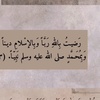 رَضِيتُ بِاللهِ رَبًّا وَبِالإِسْلامِ دِيناً
وَبِمُحَمَّدٍ صلى الله عليه وسلم نَبِيَّاً. (٣